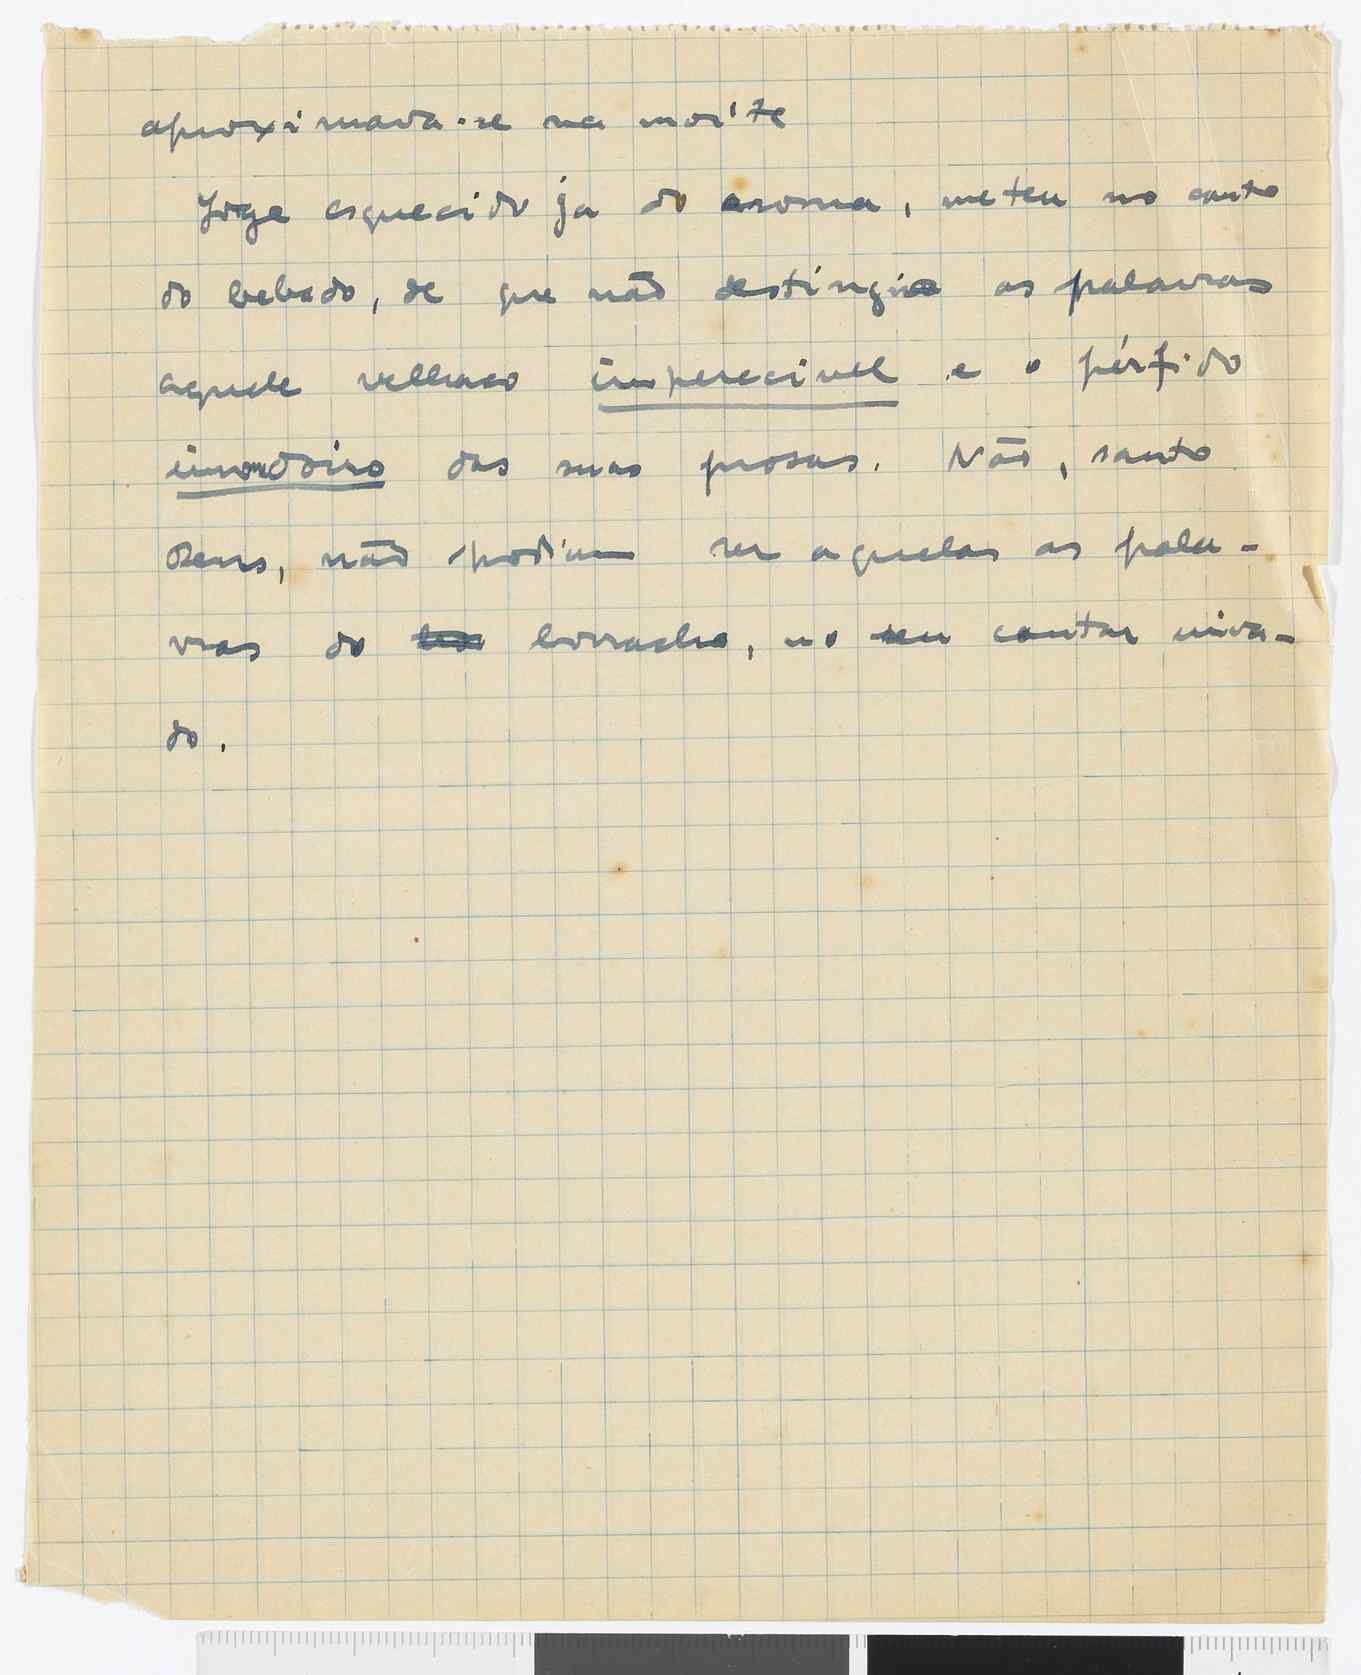 aproximava-se na noite
Jorge esquecido ja do aroma, meteu no canto
do bebado, de que não destinguia as palavras
aquele velhaco imperecivel e o pérfido
das suas prosas. Não, santo
Deus, não podiam ser aquelas as pala-
vras do borracho, no seu cantar uiva-
do.